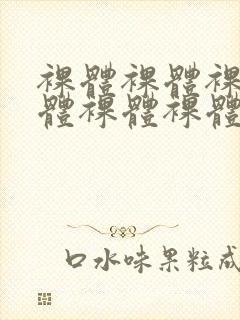 裸體裸體裸
體裸體裸體
口水味果粒成